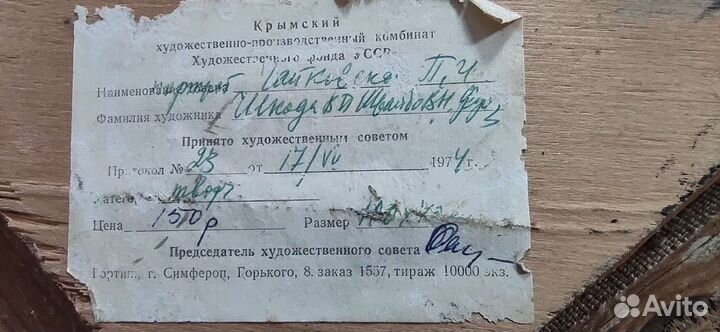 Крымский
художественно-производственный комбинат
Художественного фонда УССР
Наименование портрет Чайковско П. И
Фамилия художника Шкода
Принято художественным советом
Протокол № 23 от 17/VII 1974 г.
Катего творч
Цена 1500 р Размер
Председатель художественного совета
Гортип., г. Симфероп, Горького, 8. заказ 1557, тираж 10000 экз.
Avito